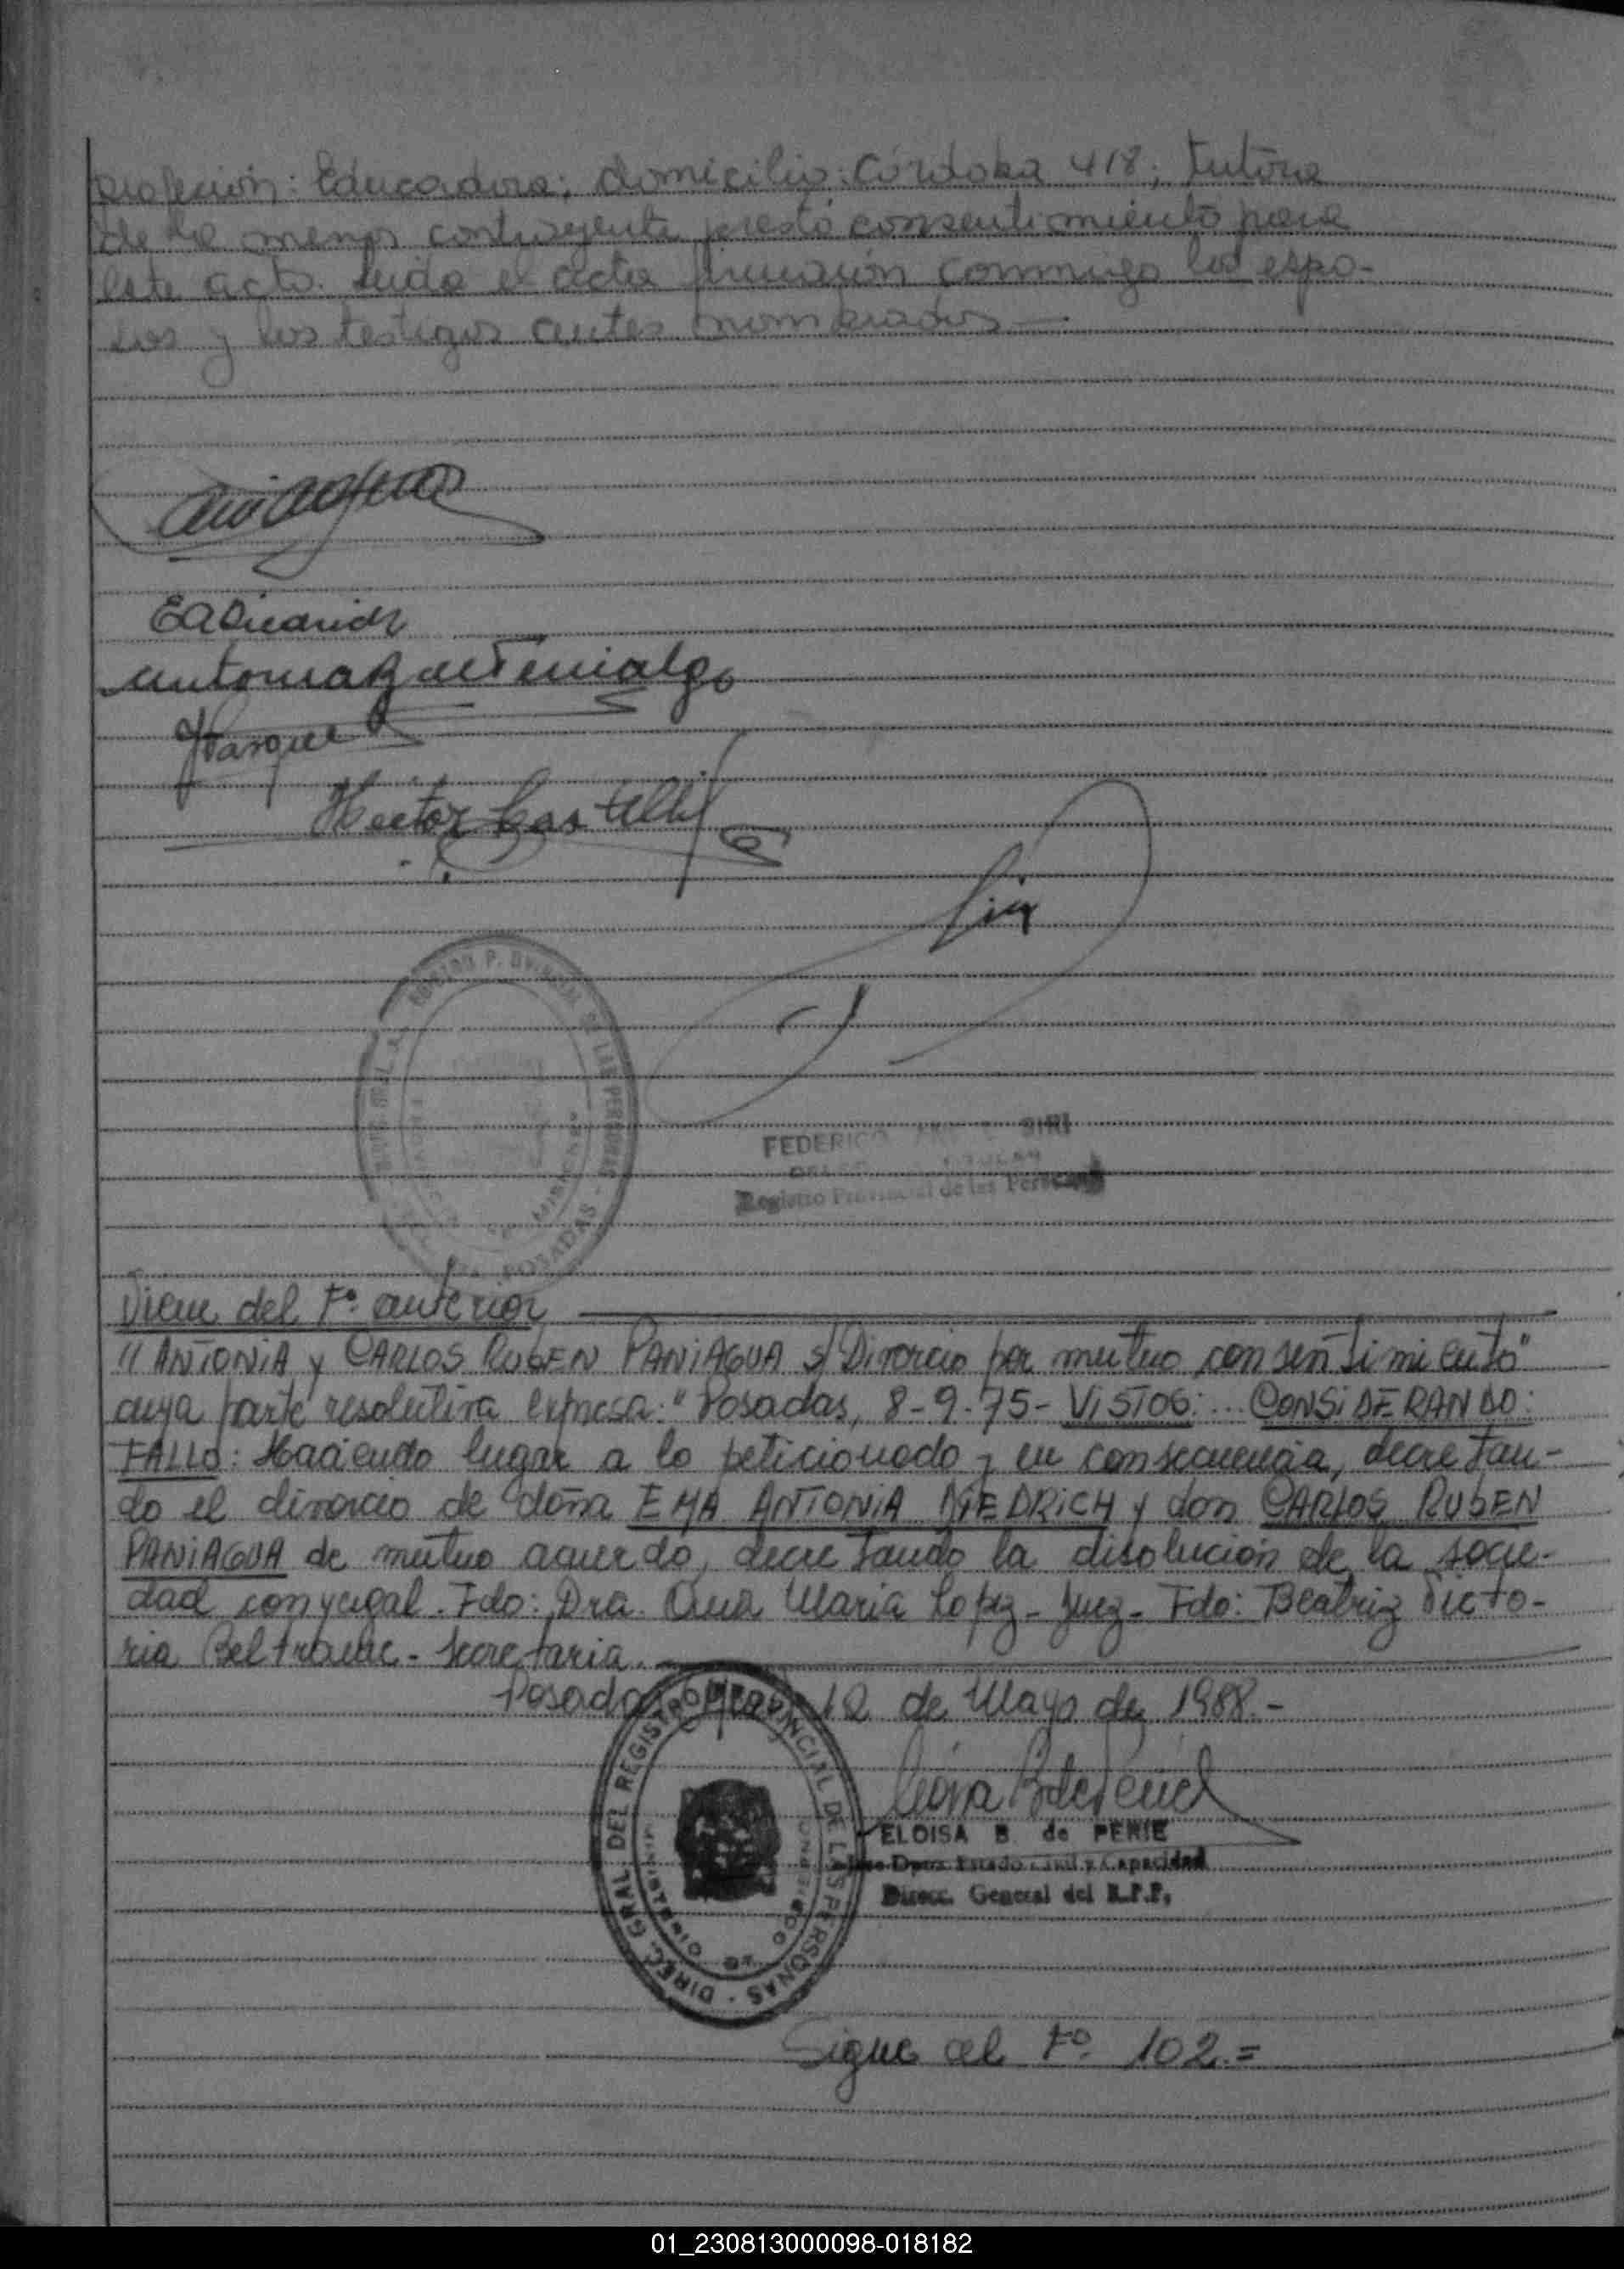 profesión: Educadora; domicilio: Córdoba 418; tutora
de la menor contrayente prestó consentimiento para
este acto. Leída el acta firmaron conmigo los espo-
sos y los testigos antes nombrados —
Hector Castell
FEDERICO SIRI
Registro Provincial de las Personas
POSADAS - MISIONES
Viene del Fº anterior
" ANTONIA y CARLOS RUBEN PANIAGUA s/ Divorcio por mutuo consentimiento"
cuya parte resolutiva expresa: "Posadas, 8-9-75- VISTOS: ... CONSIDERANDO:
FALLO: Haciendo lugar a lo peticionado y en consecuencia, decretan-
do el divorcio de doña EMA ANTONIA DIEDRICH y don CARLOS RUBEN
PANIAGUA de mutuo acuerdo, decretando la disolución de la socie-
dad conyugal. Fdo: Dra. Ana María Lopez - Juez - Fdo: Beatriz Victo-
ria Beltrame - Secretaria.
Posadas 12 de Mayo de 1988.-
DIREC. GRAL. DEL REGISTRO PROVINCIAL DE LAS PERSONAS
ELOISA B. de PERIE
Jefe Dpto. Estado Civil y Capacidad
Direcc. General del R.P.P.
Sigue al Fº 102.=
01_230813000098-018182